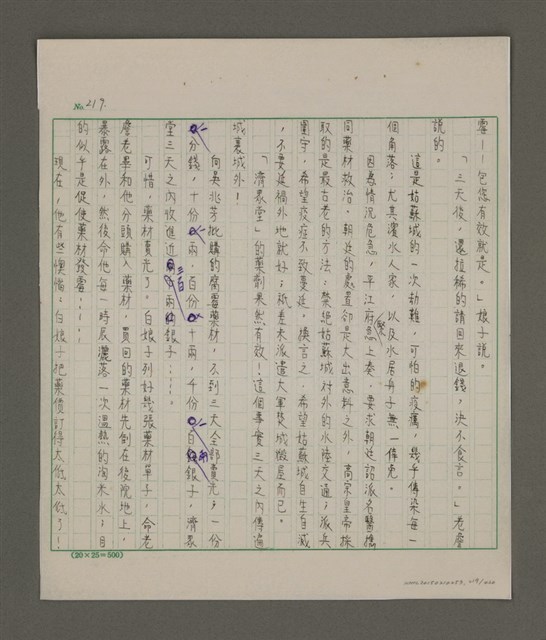 No. 219.
霉──包您有效就是。」娘子說。
「三天後，還拉稀的請回來退錢，決不食言。」老詹
說的。
這是姑蘇城的一次劫難，可怕的疫癘，幾乎傳染每一
個角落；尤其濱水人家，以及水居舟子無一倖免。
因為情況危急，平江府緊急上奏，要求朝廷詔派名醫攜
同藥材救治。朝廷的處置卻是大出意料之外，高宗皇帝採
取的是最古老的方法：禁絕姑蘇城對外的水陸交通；派兵
圍守，希望疫症不致蔓延，換言之，希望姑蘇城自生自滅
，不要延禍外地就好；祇差未派遣大軍焚城燬屋而已。
「濟眾堂」的藥劑果然有效！這個事實三天之內傳遍
城裏城外！
向吳兆芳批購的腐霉藥材，不到三天全部賣光；一份
分錢，十份 兩，百份 十兩，千份 百 銀子，濟眾
堂三天之內收進近三百 兩 銀子……
可惜，藥材賣光了。白娘子列好幾張藥材單子，命老
詹老畢和他分頭購入藥材，買回的藥材先劊在後院地上，
暴露在外，然後命他每一時辰灑落一次溫熱的淘米水；目
的似乎是促使藥材發霉……
現在，他有些懊惱：白娘子把藥價訂得太低太低了！
(20×25=500)